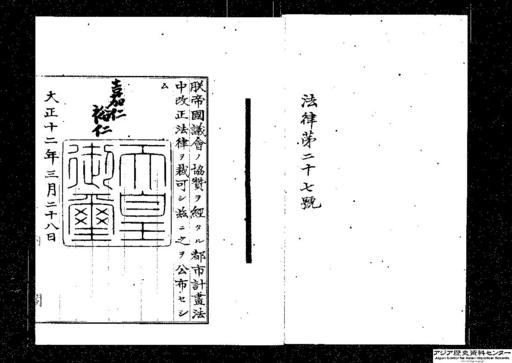 法律第二十七號
朕帝國議會ノ協贊ヲ經タル都市計畫法
中改正法律ヲ裁可シ茲ニ之ヲ公布セシ
ム
嘉仁
裕仁
天皇御璽
大正十二年三月二十八日
アジア歴史資料センター
Japan Center for Asian Historical Records